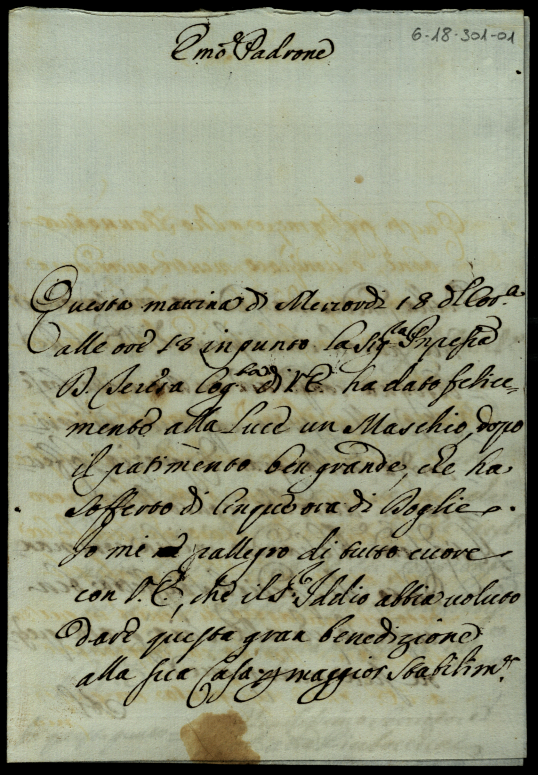 6-18-301-01
Emo͛ Padrone
Questa mattina di Mercordì 18 dell Cor.te
alle ore 13 in punto la Sig.ra Pnpessa
D. Teresa Cog.ta di V.E. ha dato felice-
mente alla Luce un Maschio, dopo
il patimento ben grande, che ha
sofferto di Cinque ora di Doglie.
Io mi rallegro di tutto cuore
con V.E, che il S. Iddio abbia voluto
dare questa gran benedizione
alla sua Casa maggior Stabilim.to